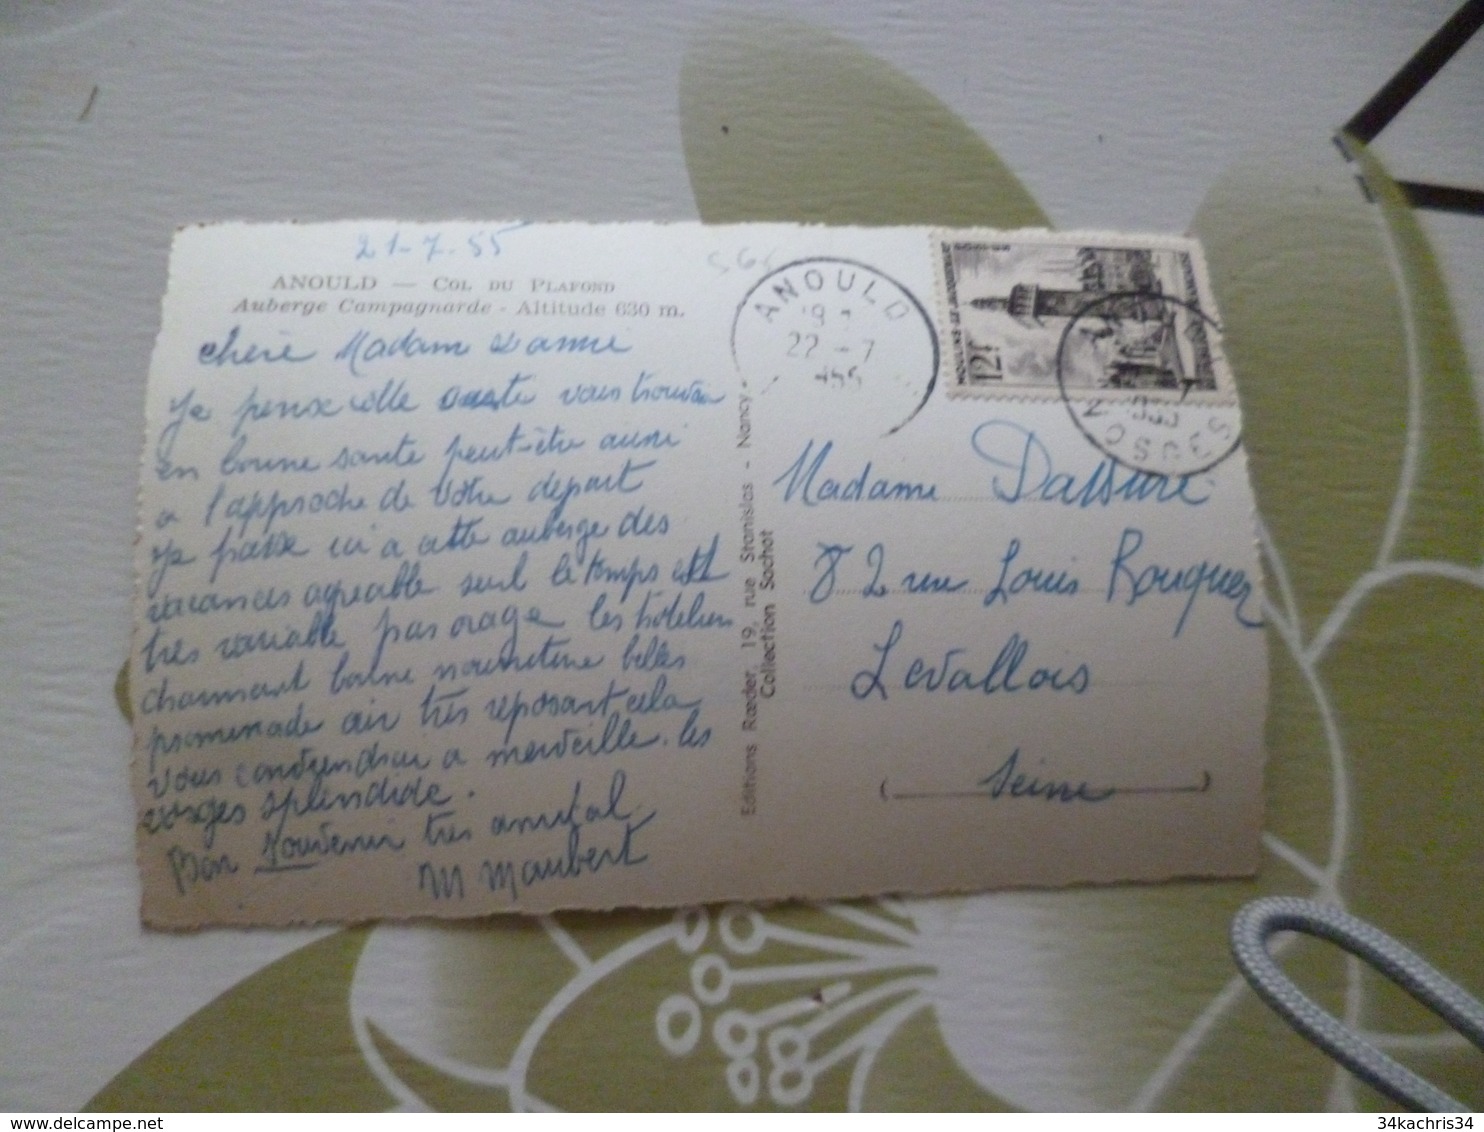 21-7.55
ANOULD — COL DU PLAFOND
Auberge Campagnarde - Altitude 630 m.
chère Madam
Je pense cette vous trouvera
en bonne sante peut-être aussi
a l'approche de votre depart
Je passe ici a cette auberge des
vacances agreable seul le temps est
tres variable pas orage les hôteliers
charmant bonne nourriture belles
promenade air très reposant cela
vous conviendrai a merveille. les
vosges splendide.
Bon souvenir tres amical
M Maubert
Editions Rœder, 19, rue Stanislas - Nancy
Collection Sochat
ANOULD
22 -7
MOULINS
12f
Madame
82 rue Louis Rouquier
Levallois
(Seine)
34kachris34